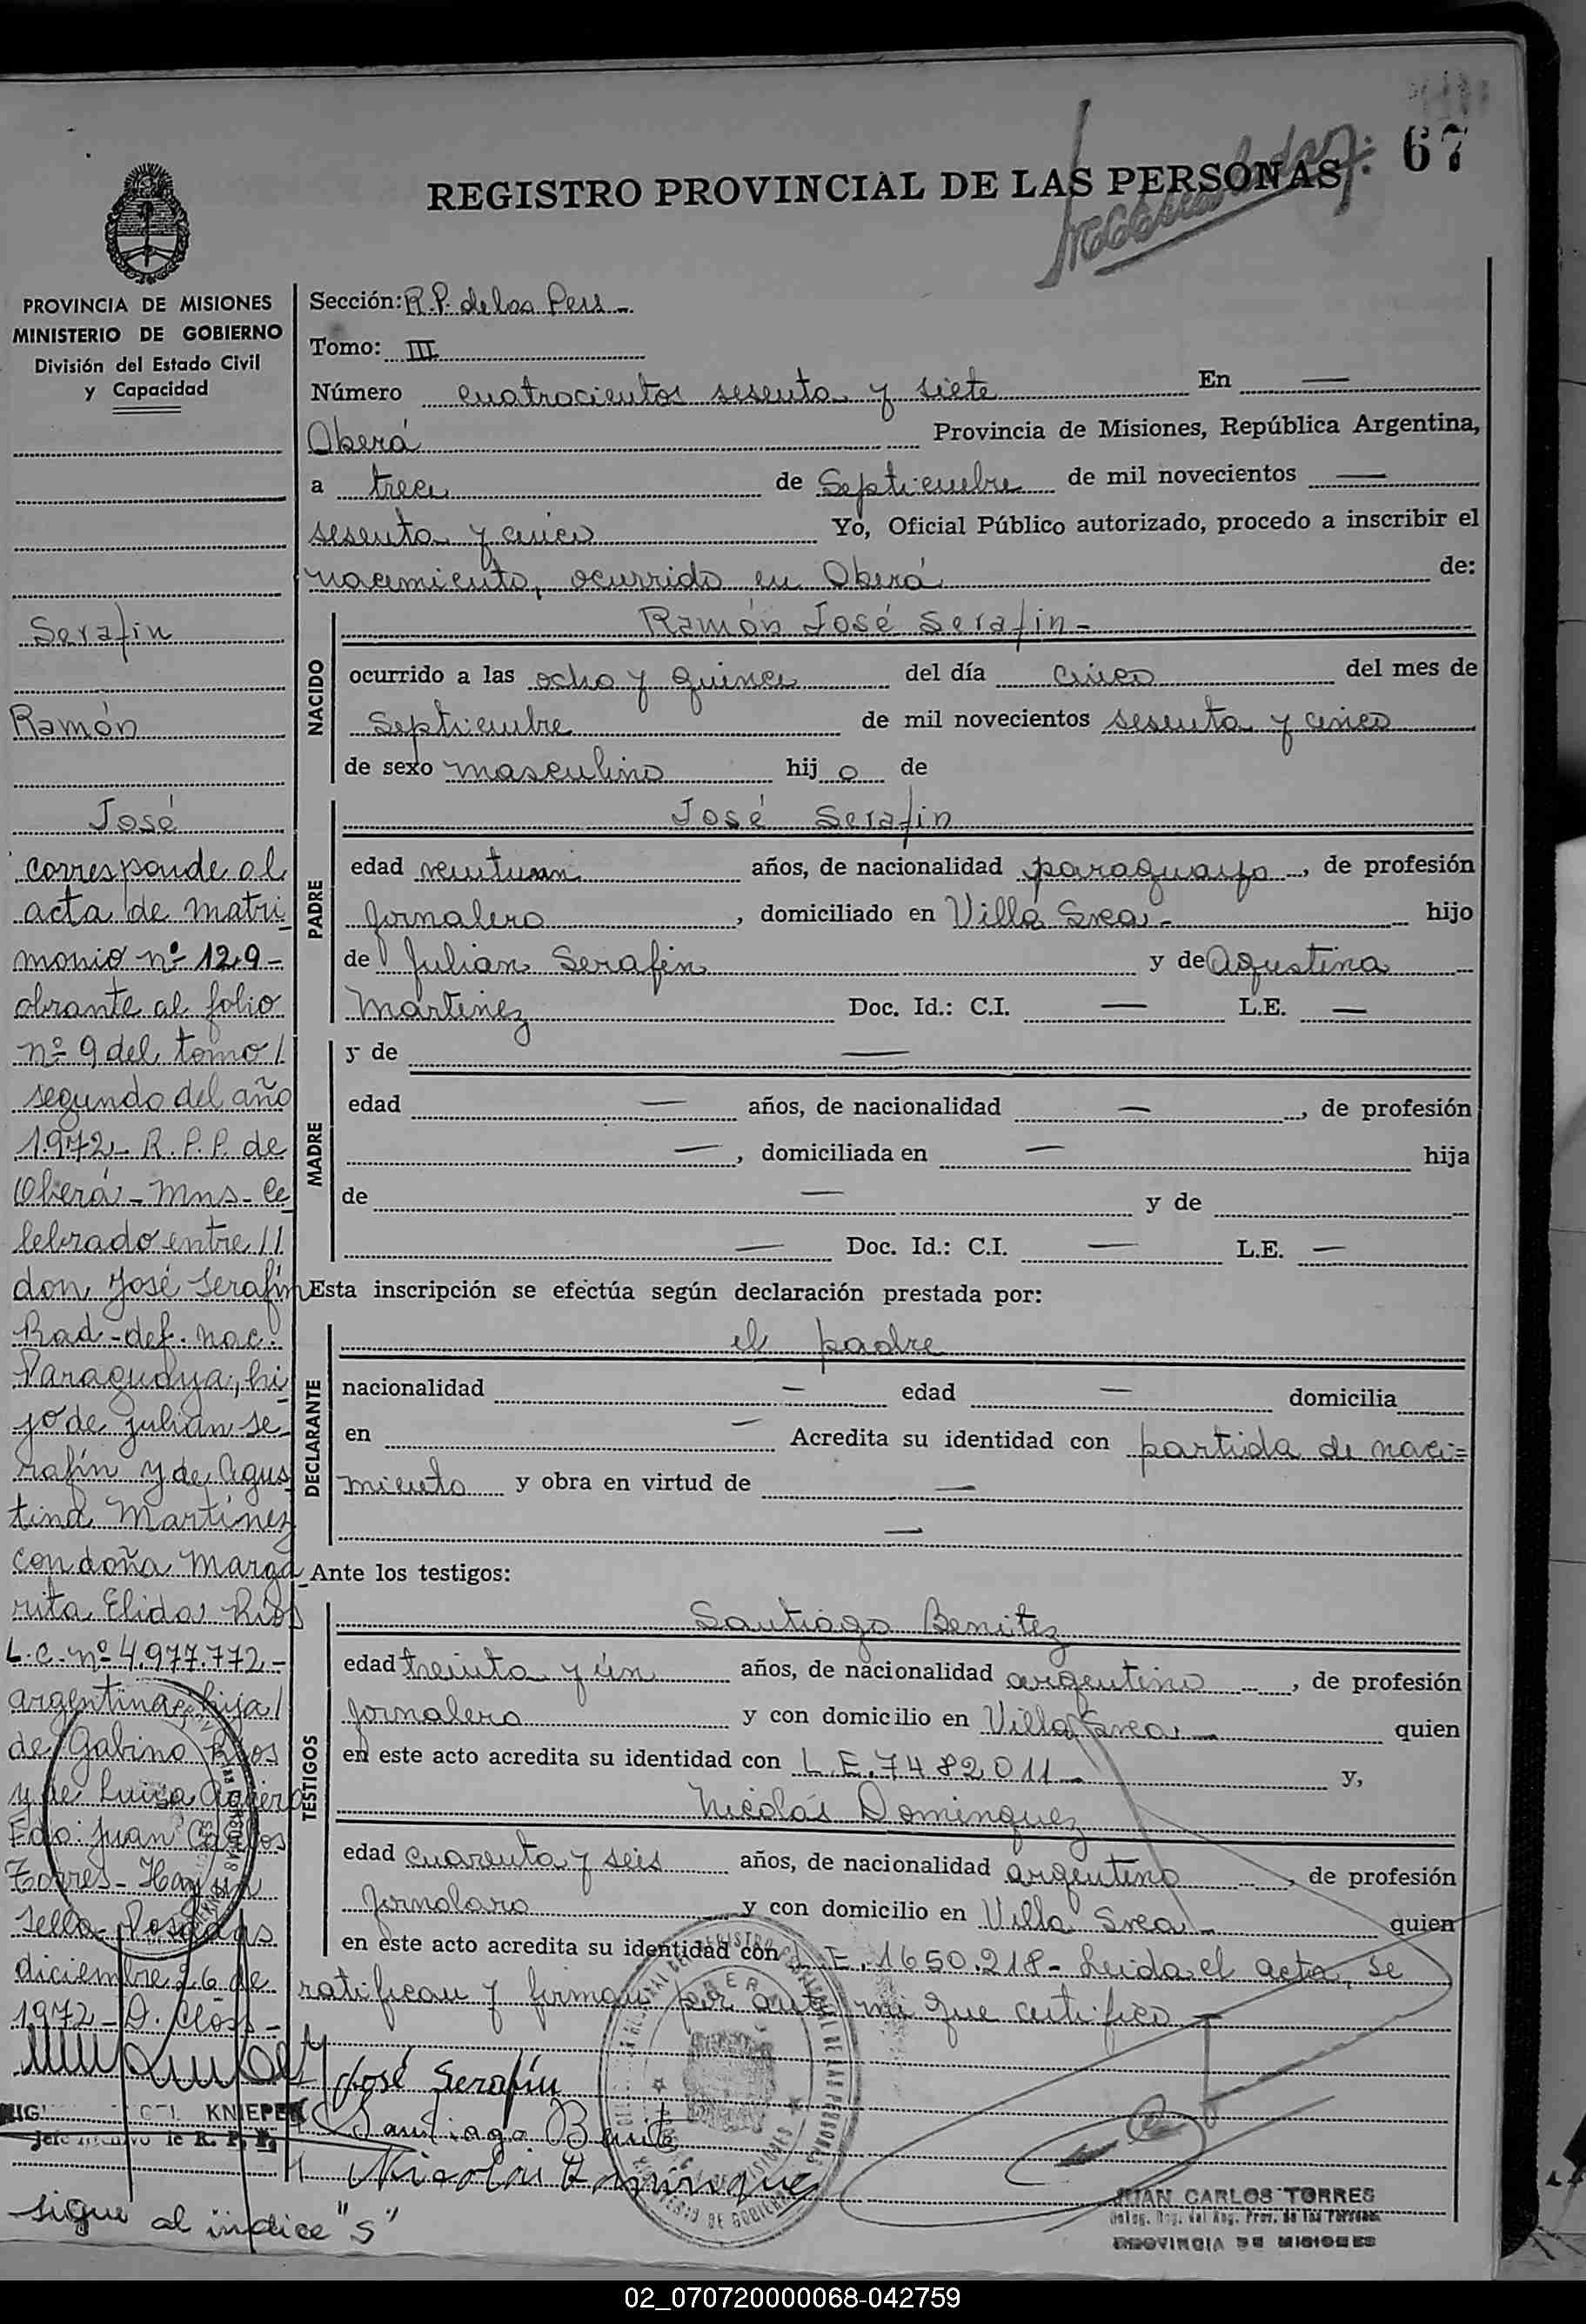 67
REGISTRO PROVINCIAL DE LAS PERSONAS
PROVINCIA DE MISIONES
MINISTERIO DE GOBIERNO
División del Estado Civil
y Capacidad
Serafín
Ramón
José
corresponde al
acta de matri
monio nº 129-
obrante al folio
nº 9 del tomo /
segundo del año
1972- R.P.P. de
Oberá - Mns- Ce
lebrado entre //
don José Serafín
Rad-def. nac.
Paraguaya, hi
jo de Julián Se
rafín y de Agus
tina Martínez
con doña Marga
rita Elida Ríos
L.C. nº 4.977.772.-
argentina, hija /
de Gabino Ríos
y de Luisa
Fdo: Juan Carlos
Torres- Hay un
sello- Posadas
diciembre 26 de
1972- D. Closs-
KNIEPER
Jefe de R. P. P.
sigue al índice "S"
Sección: R.P. de las Pers-
Tomo: III
Número cuatrocientos sesenta y siete En —
Oberá Provincia de Misiones, República Argentina,
a trece de Septiembre de mil novecientos —
sesenta y cinco Yo, Oficial Público autorizado, procedo a inscribir el
nacimiento, ocurrido en Oberá de:
NACIDO
Ramón José Serafín-
ocurrido a las ocho y quince del día cinco del mes de
Septiembre de mil novecientos sesenta y cinco
de sexo masculino hij o de
PADRE
José Serafín
edad veintiun años, de nacionalidad paraguaya, de profesión
Jornalero, domiciliado en Villa Svea- hijo
de Julián Serafín y de Agustina
Martínez Doc. Id.: C.I. — L.E. —
MADRE
y de —
edad — años, de nacionalidad —, de profesión
—, domiciliada en — hija
de — y de
— Doc. Id.: C.I. — L.E. —
Esta inscripción se efectúa según declaración prestada por:
DECLARANTE
el padre
nacionalidad — edad — domicilia
en — Acredita su identidad con partida de naci=
miento y obra en virtud de —
—
Ante los testigos:
TESTIGOS
Santiago Benitez
edad treinta y ún años, de nacionalidad argentino, de profesión
Jornalero y con domicilio en Villa Svea- quien
en este acto acredita su identidad con L.E. 7482011- y,
Nicolás Dominguez
edad cuarenta y seis años, de nacionalidad argentino, de profesión
Jornalaro y con domicilio en Villa Svea- quien
en este acto acredita su identidad con L.E. 1650.218- Leida el acta, se
ratifican y firman por ante mi que certifico
José Serafín
Santiago Benitez
Nicolas Dominguez
JUAN CARLOS TORRES
Deleg. Reg. del Reg. Prov. de las Personas
PROVINCIA DE MISIONES
02_070720000068-042759